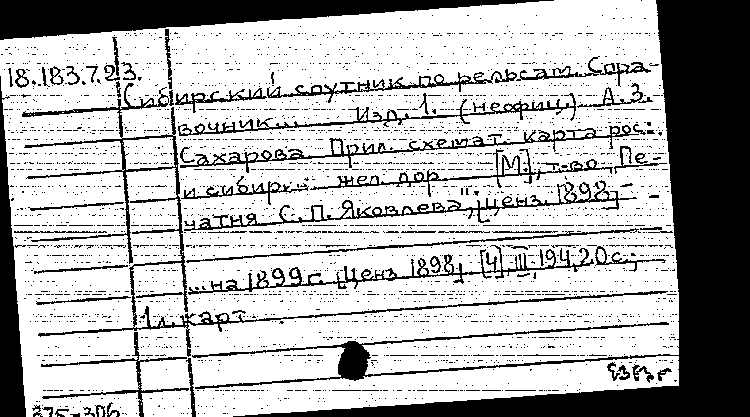 18.183.7.23.
Сибирский спутник по рельсам. Спра-
вочник... Изд. 1. (неофиц.) А.З.
Сахарова. Прил. схемат. карта рос.
и сибирк. жел. дор. [М.], т-во "Пе-
чатня С.П. Яковлева", [ценз. 1898] -
...на 1899 г. [Ценз 1898]. [4], III, 194, 20 с.;
1 л. карт.
375-306